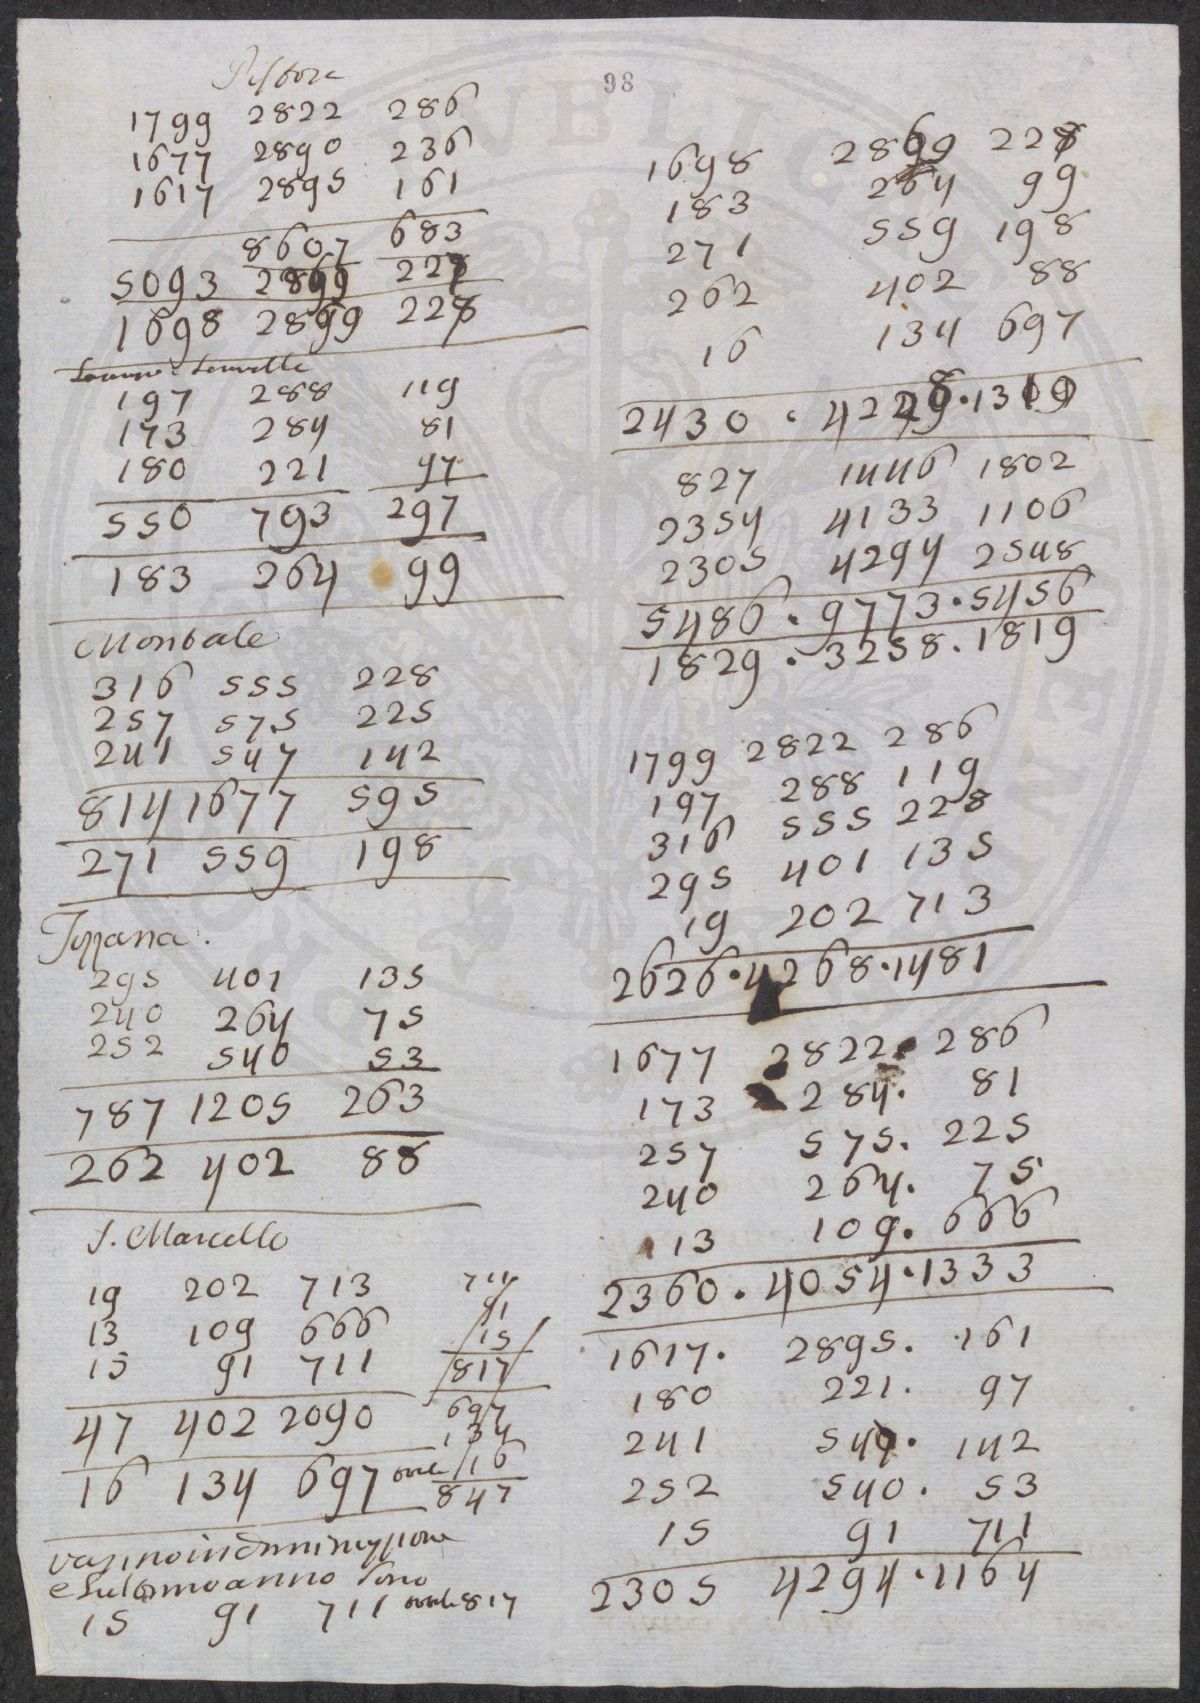 98
Pistora
1799 2822 286
1677 2890 236
1617 2895 161
8607 683
5093 2869 227
1698 2899 228
197 288 119
173 284 81
180 221 97
550 793 297
183 264 99
Montale
316 555 228
257 575 225
241 547 142
814 1677 595
271 559 198
Tizzana.
295 401 135
240 264 75
252 540 53
787 1205 263
262 402 88
S. Marcello
19 202 713
13 109 666
15 91 711
47 402 2090
16 134 697
711
91
15
817
697
134
16
847
e
anno sono
15 91 711 817
1698 2869 228
183 264 99
271 559 198
262 402 88
16 134 697
2430 . 4228 . 1310
827 1446 1802
2354 4133 1106
2305 4294 2548
5486 . 9773 . 5456
1829 . 3258 . 1819
1799 2822 286
197 288 119
316 555 228
295 401 135
19 202 713
2626 . 4268 . 1481
1677 2822 . 286
173 284 . 81
257 575 . 225
240 264 . 75
13 109 . 666
2360 . 4054 . 1333
1617 . 2895 . 161
180 221 . 97
241 547 . 142
252 540 . 53
15 91 711
2305 4294 . 1164